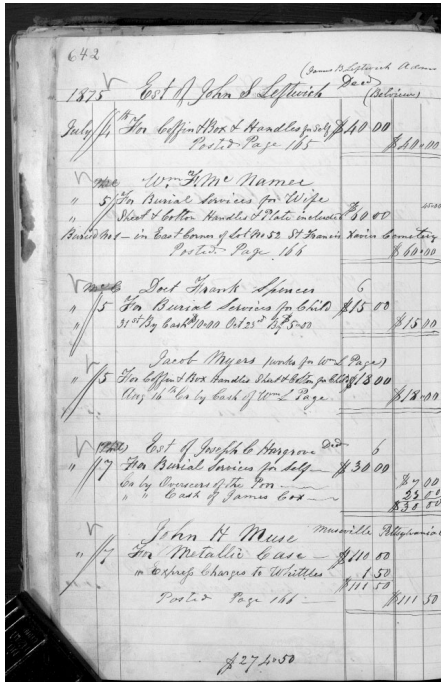 642
(James B Leftwich Adm
1875 Est of John S Leftwich Decd (Belview)
July 4th For Coffin & Box & Handles for Self $40.00
Posted Page 165 $40.00
Wm F McNamee
" 5 For Burial Services for Wife 45.00
Sheet & Cotton Handles & Plate included $60.00
Buried No 1 - in East Corner of Lot No 52 St Francis Xavier Cemetery
Posted Page 166 $60.00
Doct Frank Spencer 6
" 5 For Burial Services for Child $15.00
31st By Cash $10.00 Oct 23d By $5.00 $15.00
Jacob Myers (works for Wm L Page)
" 5 For Coffin & Box Handles Sheet & Cotton for Child $18.00
Aug 16th Cr by Cash of Wm L Page $18.00
Est of Joseph C Hargrove Decd 6
" 7 For Burial Services for Self $30.00
Cr by Overseers of the Poor $7.00
" " Cash of James Cox 23.00
$30.00
John H Muse Museville Pittsylvania C
" 7 For Metallic Case $110.00
" Express Charges to Whittles 1.50
$111.50
Posted Page 166 $111.50
$274.50